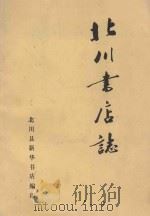 北川书店誌
北川县新华书店编